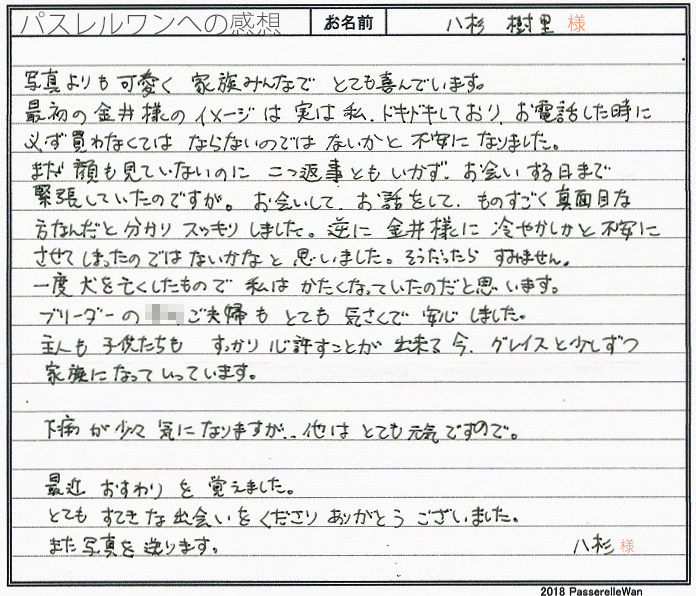 パスレルワンへの感想 お名前 八杉 樹里 様
写真よりも可愛く 家族みんなで とても喜んでいます。
最初の金井様のイメージは 実は私、ドキドキしており、お電話した時に
必ず買わなくては ならないのでは ないかと 不安に なりました。
まだ 顔も見ていないのに 二つ返事とも いかず、お会いする日まで
緊張していたのですが。 お会いして、お話をして、ものすごく真面目な
方なんだと 分かり スッキリ しました。逆に 金井様に 冷やかしかと 不安に
させてしまったのでは ないかなと 思いました。そうだったら すみません。
一度 犬を亡くしたもので 私は かたくなっていたのだと思います。
ブリーダーの ご夫婦も とても 気さくで 安心 しました。
主人も 子供たちも すっかり 心許すことが 出来る 今、グレイスと少しずつ
家族になって いっています。
下痢が 少々 気になりますが、、他は とても元気ですので。
最近 おすわり を 覚えました。
とても すてきな 出会いを くださり ありがとう ございました。
また写真を 送ります。 八杉 様
2018 PasserelleWan